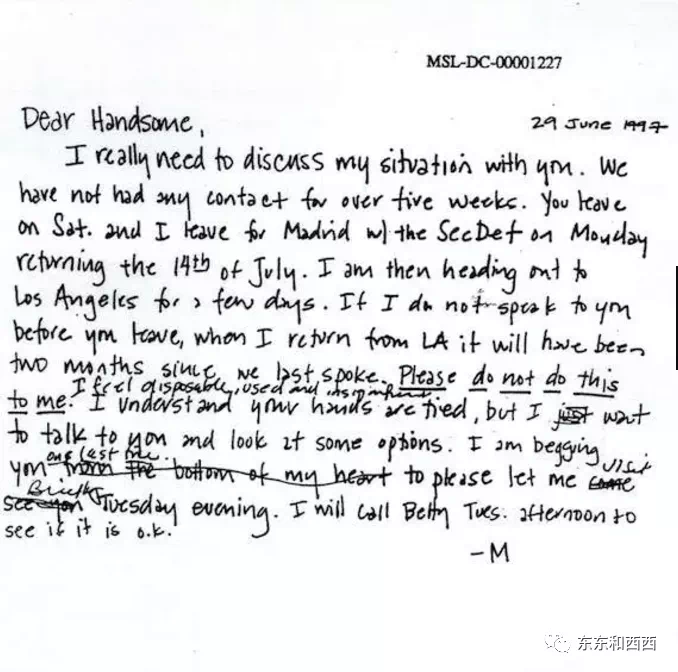 MSL-DC-00001227
29 June 1997
Dear Handsome,
I really need to discuss my situation with you. We
have not had any contact for over five weeks. You leave
on Sat. and I leave for Madrid w/ the SecDef on Monday
returning the 14th of July. I am then heading out to
Los Angeles for a few days. If I do not speak to you
before you leave, when I return from LA it will have been
two months since we last spoke. Please do not do this
I feel disposable, used and insignificant
to me. I understand your hands are tied, but I just want
to talk to you and look at some options. I am begging
one last time. visit
you from the bottom of my heart to please let me come
Briefly
see you Tuesday evening. I will call Betty Tues. afternoon to
see if it is o.k.
-M
东东和西西